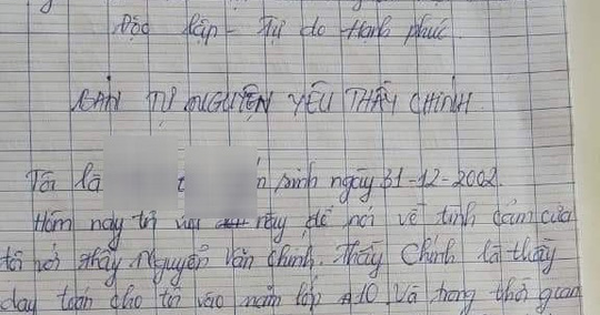 Độc lập - Tự do Hạnh phúc.
BẢN TỰ NGUYỆN YÊU THẦY CHINH.
Tôi là t n sinh ngày 31-12-2002.
Hôm nay tôi này để nói về tình cảm của
tôi với thầy Nguyễn Văn Chinh. Thầy Chinh là thầy
dạy toán cho tôi vào năm lớp 10. Và trong thời gian